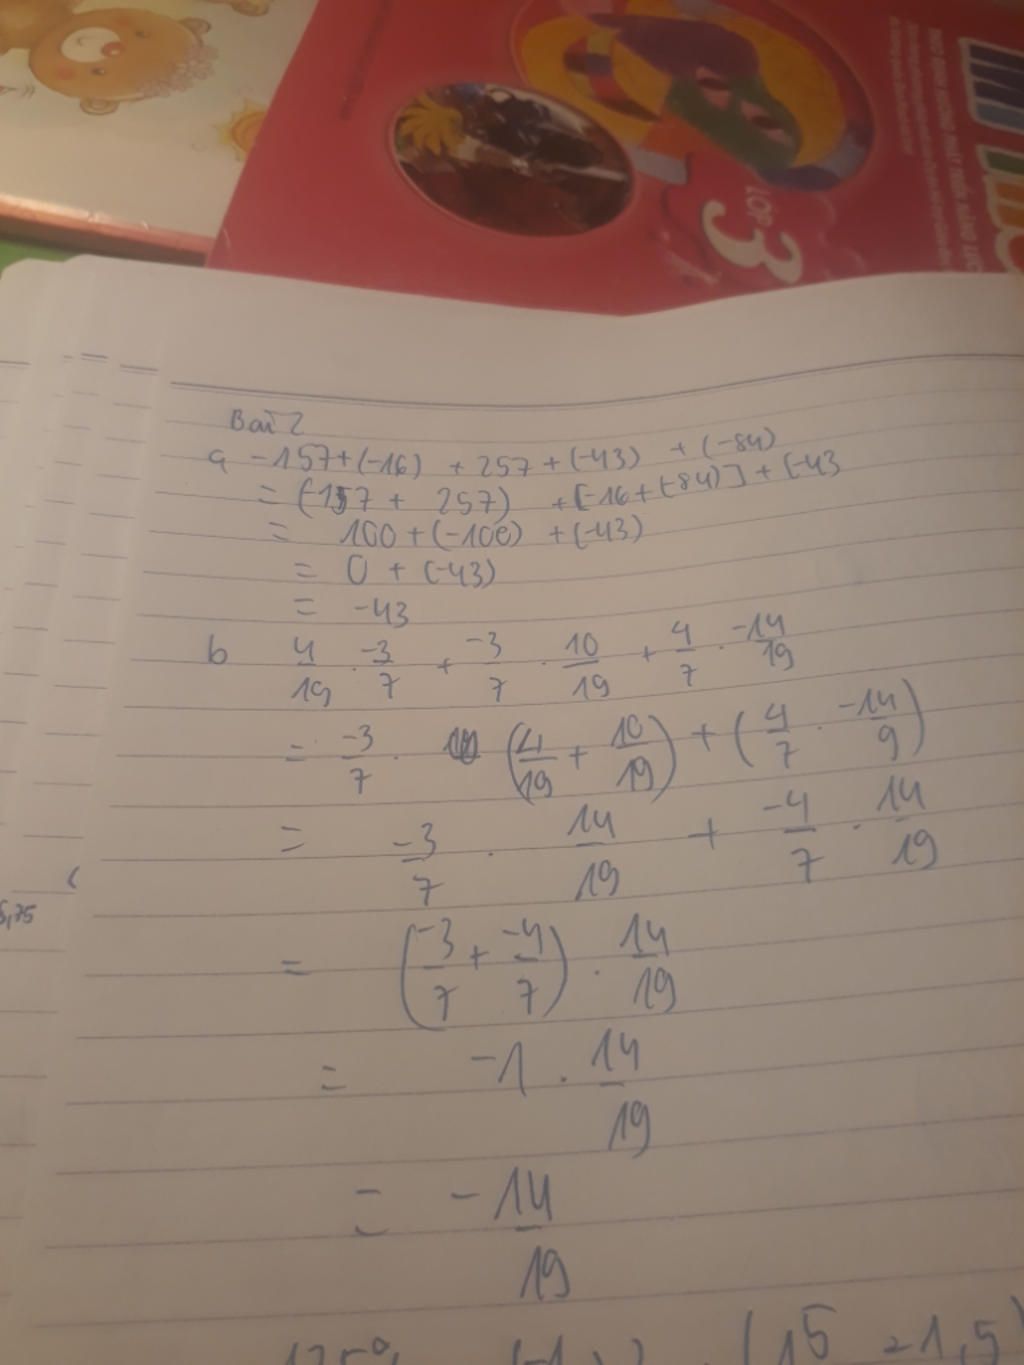 LỚP
3
Bài 2
a -157+(-16) + 257 + (-43) + (-84)
= (-157 + 257) + [-16 + (-84)] + (-43
= 100 + (-100) + (-43)
= 0 + (-43)
= -43
b 4/19 . -3/7 + -3/7 . 10/19 + 4/7 . -14/19
= -3/7 . (4/19 + 10/19) + (4/7 . -14/9)
= -3/7 . 14/19 + -4/7 . 14/19
= (-3/7 + -4/7) . 14/19
= -1 . 14/19
= -14/19
(15 -1,5)